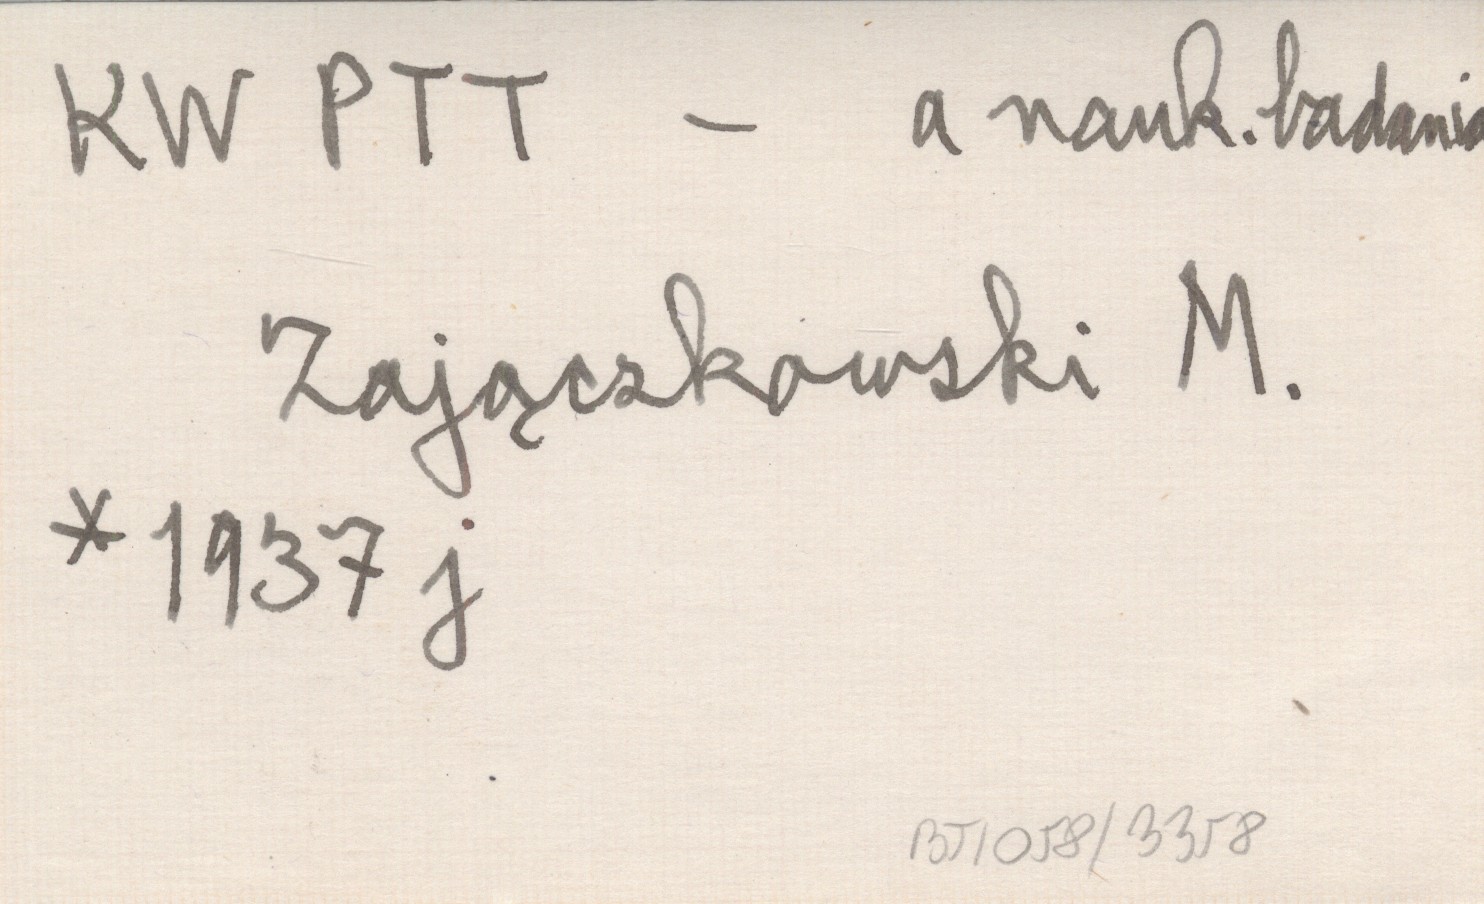 KW PTT - a nauk. badania
Zajączkowski M.
* 1937 j
BJ/058/3358